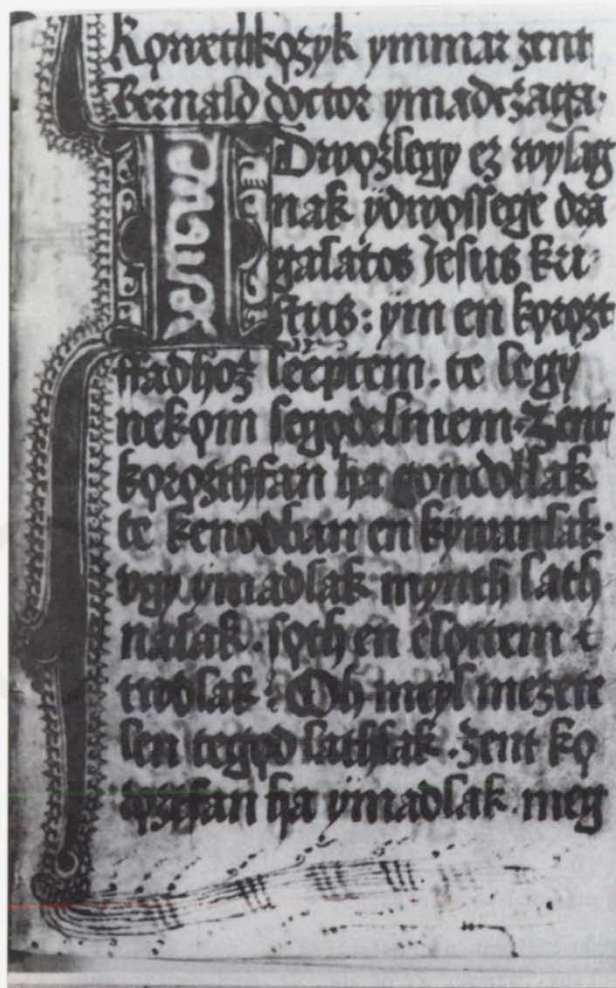 Kọuethkọzyk ymmar zent
Bernald doctor ymadczaga·
Idwọzlegy ez wylag
nak ydwọssege dra
galatos Jesus kri
stus: ym en kọrọzt
ffadhoz leeptem. te legy
nekọm segọdelmem· Zent
kọrọzthfan ha gondollak
te kenodban en kywanlak·
vgy ymadlak mynth lath
nalak· sọth en elọttem t
twdlak: Oh meyl mezete
len tegọd lathlak· Zent kọ
rọzthfan ha ymadlak· meg